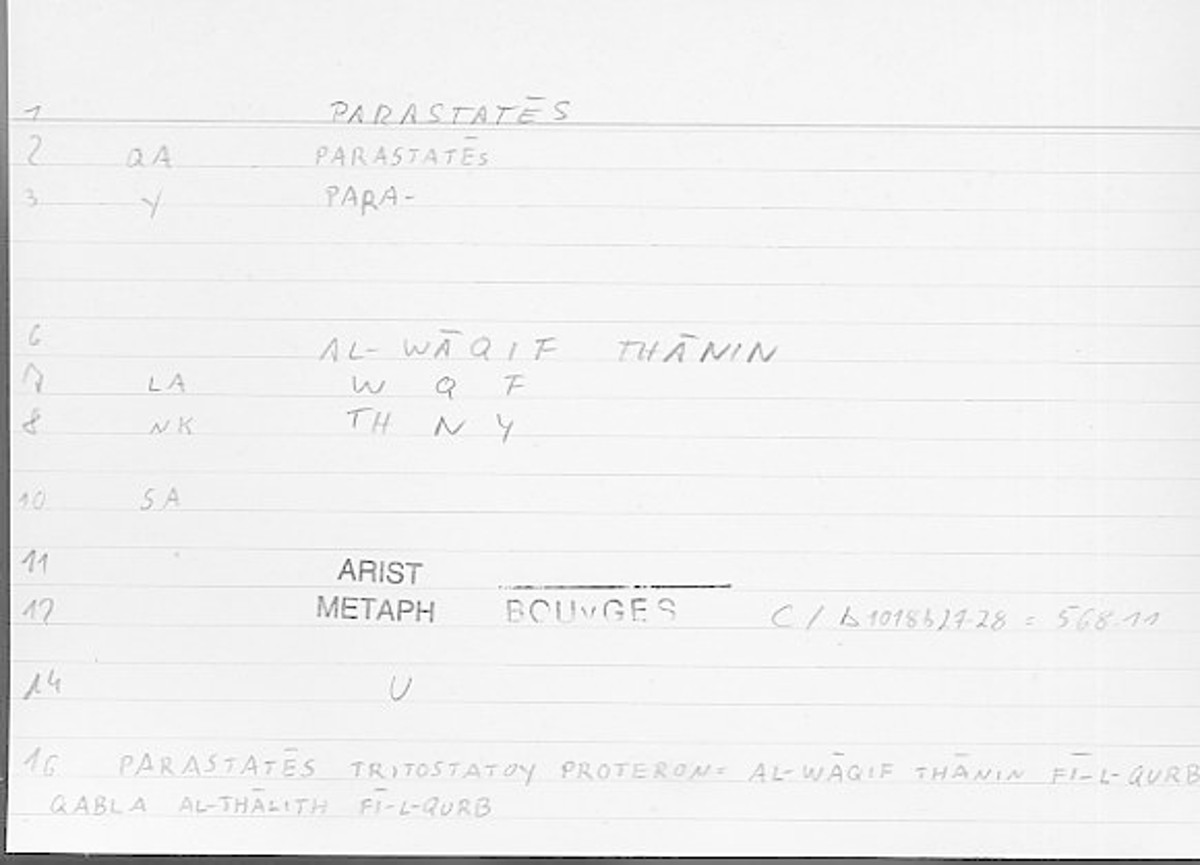 1 PARASTATĒS
2 QA PARASTATĒS
3 Y PARA-
6 AL-WĀQIF THĀNIN
7 LA W Q F
8 NK TH N Y
10 SA
11 ARIST
12 METAPH BOUYGES C / Δ 1018b27-28 = 568.11
14 U
16 PARASTATĒS TRITOSTATOY PROTERON= AL-WĀQIF THĀNIN FĪ-L-QURB
QABLA AL-THĀLITH FĪ-L-QURB